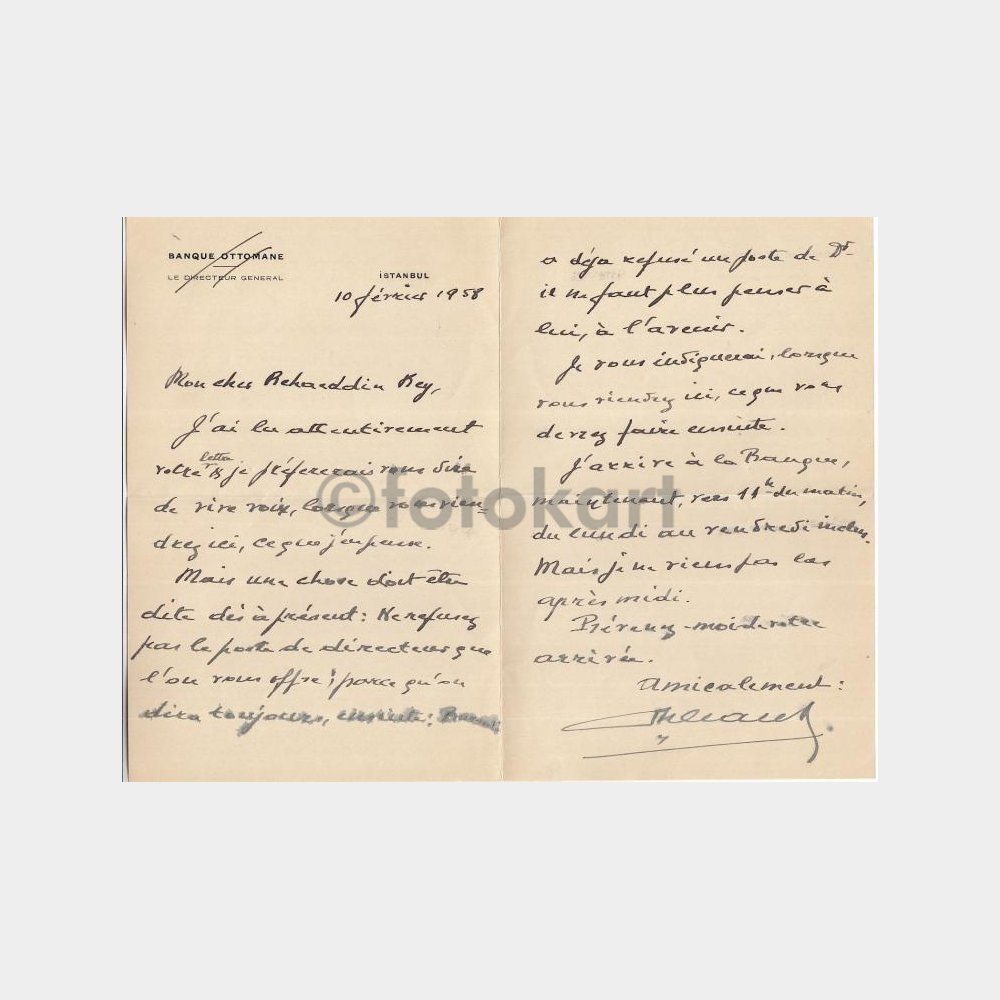 BANQUE OTTOMANE
LE DIRECTEUR GENERAL
İSTANBUL
10 février 1958
Mon cher Behaeddin Bey,
J'ai lu attentivement
votre lettre & je préfererais vous dire
de vive voix, lorsque vous vien-
drez ici, ce que j'en pense.
Mais une chose doit être
dite dès à présent: Ne refusez
pas le poste de directeur que
l'on vous offre; parce qu'on
dira toujours, ensuite:
a déja refusé un poste de Dr
il ne faut plus penser à
lui, à l'avenir.
Je vous indiquerai, lorsque
vous viendrez ici, ce que vous
devrez faire ensuite.
J'arrive à la Banque,
maintenant, vers 11h du matin,
du lundi au vendredi inclus.
Mais je ne viens pas les
après midi.
Prévenez-moi de votre
arrivée.
Amicalement:
©fotokart